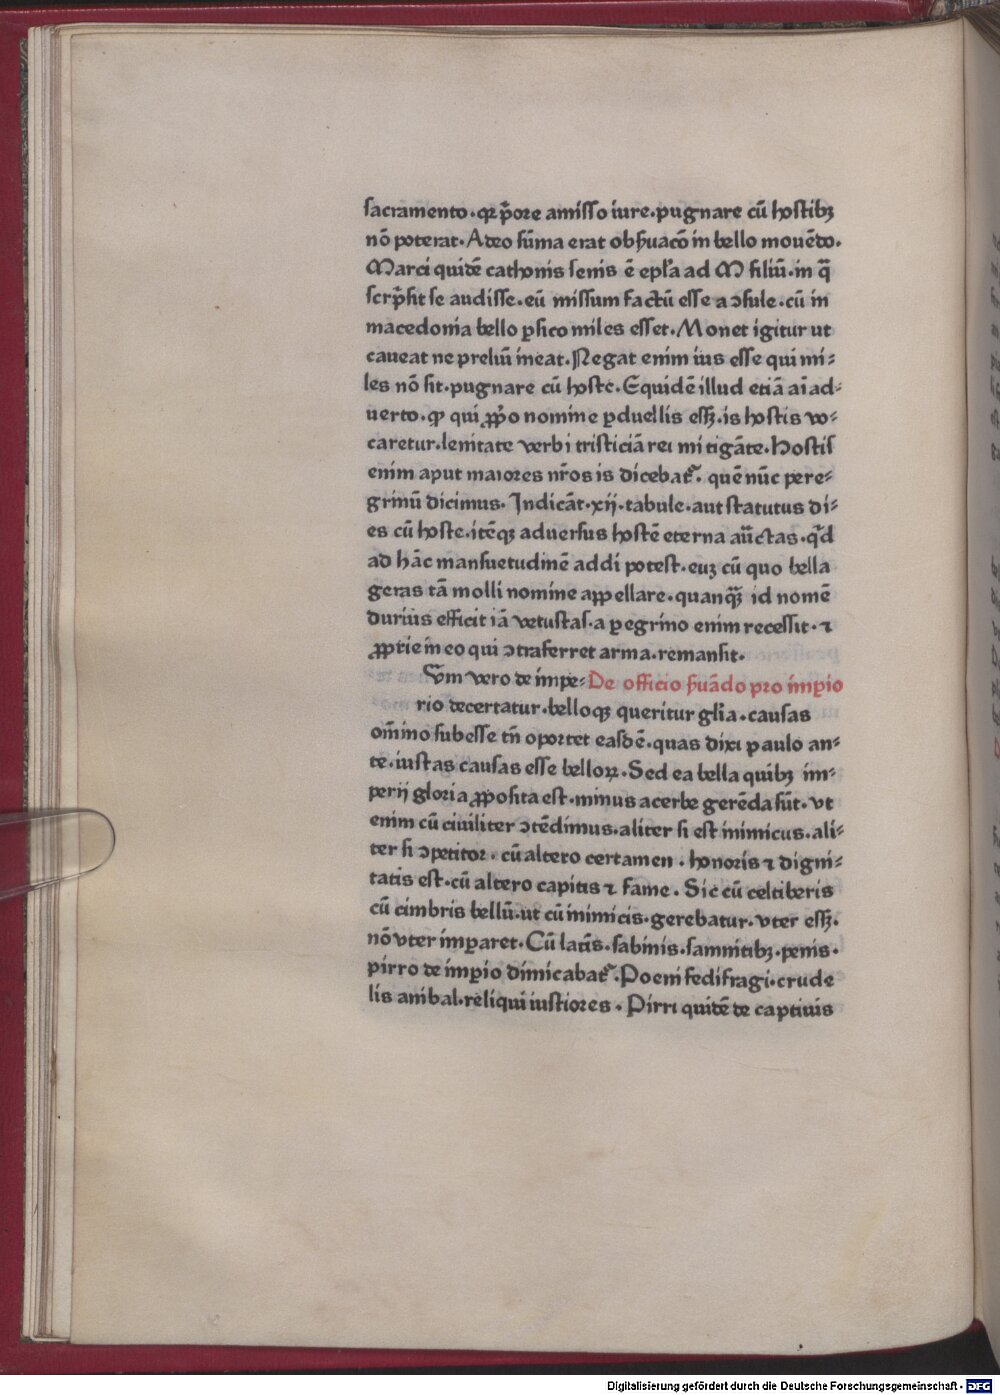 sacramento·qꝛ p̄ore amisso iure·pugnare cū hostibꝫ
nō poterat·Adeo sūma erat obẜuacō in bello mouēdo·
Marci quidē cathonis senis ē epl̄a ad M filiū·in q̄
scrp̄sit se audisse·eū missum factū esse a ↄsule·cū in
macedonia bello ꝑsico miles esset·Monet igitur ut
caueat ne preliū ineat·Negat enim ius esse qui mi⸗
les nō sit·pugnare cū hoste·Equidē illud etiā aīad⸗
uerto·ꝙ qui ꝓp̄o nomine ꝑduellis essꝫ·is hostis vo⸗
caretur·lenitate verbi tristiciā rei mitigāte·Hostis
enim aput maiores nr̄os is dicebat᷑·quē nūc pere⸗
grinū dicimus·Indicāt·xij·tabule·aut statutus di⸗
es cū hoste·itēqꝫ aduersus hostē eterna auc̄tas·qd̄
ad hāc mansuetudinē addi potest·euꝫ cū quo bella
geras tā molli nomine appellare·quanq̄ꝫ id nomē
durius efficit iā vetustas·a ꝑegrino enim recessit·⁊
ꝓprie in eo qui ↄtra ferret arma·remansit·
Cum vero de impe⸗ De officio ẜuādo pro imꝑio
rio decertatur·belloqꝫ queritur glīa·causas
om̄ino subesse tn̄ oportet easdē·quas dixi paulo an⸗
te·iustas causas esse belloꝝ·Sed ea bella quibꝫ im⸗
perij gloria ꝓposita est·minus acerbe gerēda sūt·vt
enim cū ciuiliter ↄtēdimus·aliter si est inimicus·ali⸗
ter si ↄpetitor·cū altero certamen·honoris ⁊ digni⸗
tatis est·cū altero capitis ⁊ fame·Sic cū celtiberis
cū cimbris bellū·ut cū inimicis·gerebatur·vter essꝫ·
nō vter imꝑaret·Cū latīs·sabinis·samnitibꝫ·penis·
pirro de imꝑio dimicabat᷑·Poeni fedifragi·crude
lis anibal·reliqui iustiores·Pirri quidē de captiuis
Digitalisierung gefördert durch die Deutsche Forschungsgemeinschaft · DFG